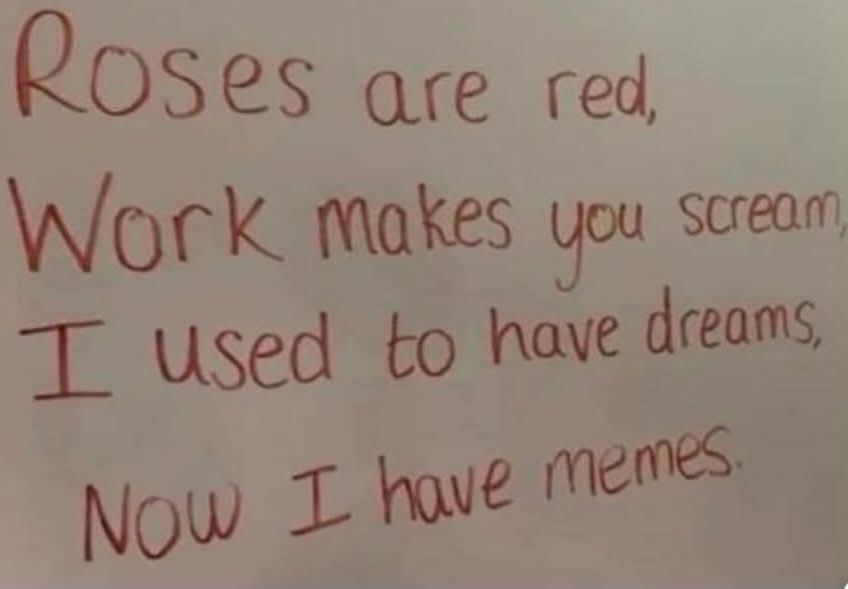 Roses are red,
Work makes you scream,
I used to have dreams,
Now I have memes.